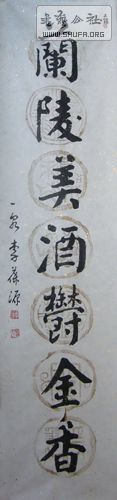 書法公社
WWW.SHUFA.ORG
蘭陵美酒鬱金香
一泉李葆源